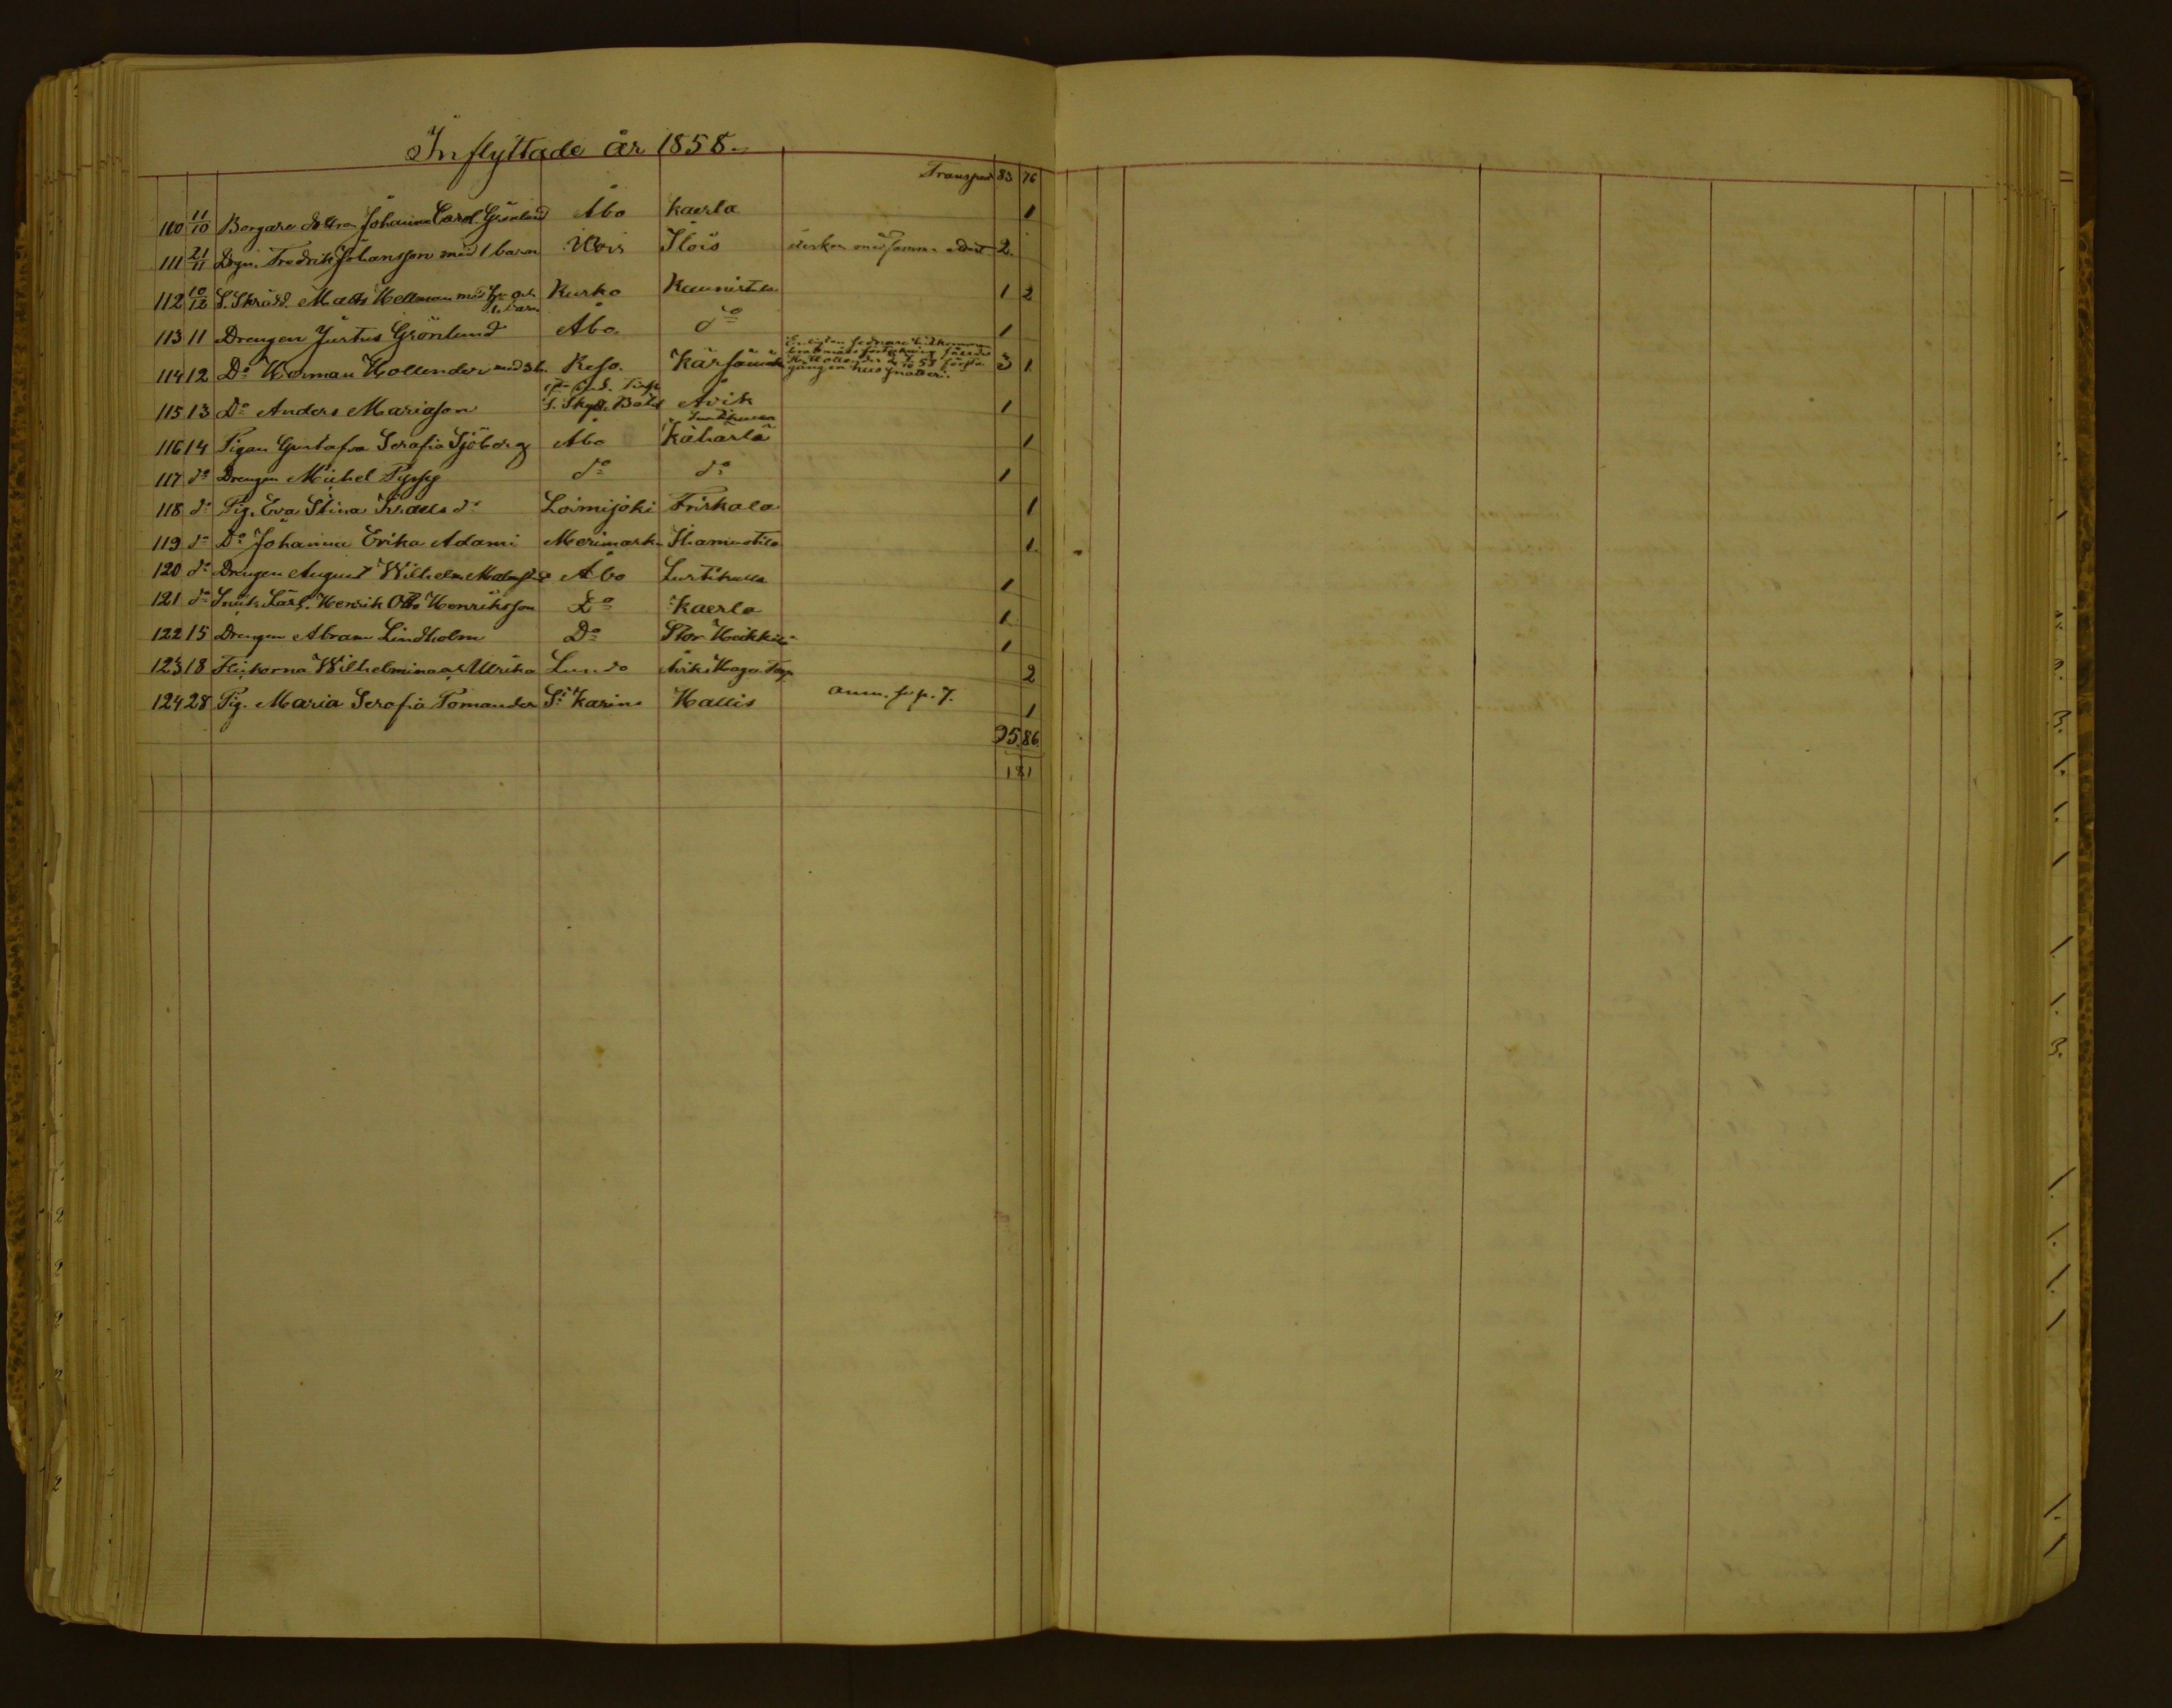 Inflyttade år 1858.
Transport 83 76
110 11/10 Borgare dottren Johanna Carol. Grönlund Åbo Kaerla 1
111 21/11 Drgn. Fredrik Johansson med 1 barn Ilois 2
112 10/12 S. Skrädd. Matts Hellman med Kusko Kaunista 1 2
1 barn
113 11 Drengen Justus Grönlund Åbo do 1
114 12 Do Herman Hollender med 3 b. Reso. Kärsämäki 3 1
115 13 Do Anders Mariason Avik 1
116 14 Pigan Gustafva Serafia Sjöberg Åbo Käharlä 1
117 do Drengen Michel Pyssy do do 1
118 do Pig. Eva Stina Israels dr Loimijoki Friskala 1
119 do Do Johanna Erika Adami Merimasku 1
120 do Drengen August Wilhelm Åbo Lustikulla 1
121 do Henrik Otto Henriksson Do Kaerla 1
122 15 Drengen Abram Lindholm Do Stor Heikkilä 1
123 18 Flickorna Wilhelmina o. Ulrika Lundo 2
124 28 Pig. Maria Serafia Tomander St Karins Hallis anm. se p. 7. 1
95 86
181